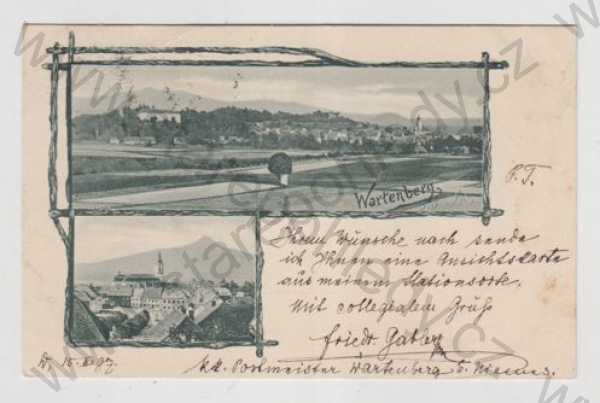 Wartenberg.
P. T.
Ihrem Wunsche nach sende
ich Ihnen eine Ansichtskarte
aus meinem Stationsorte.
Mit collegialem Gruß
Friedr. Gabler
W, 15. 97.
k.k. Postmeister Wartenberg b. Niemes.